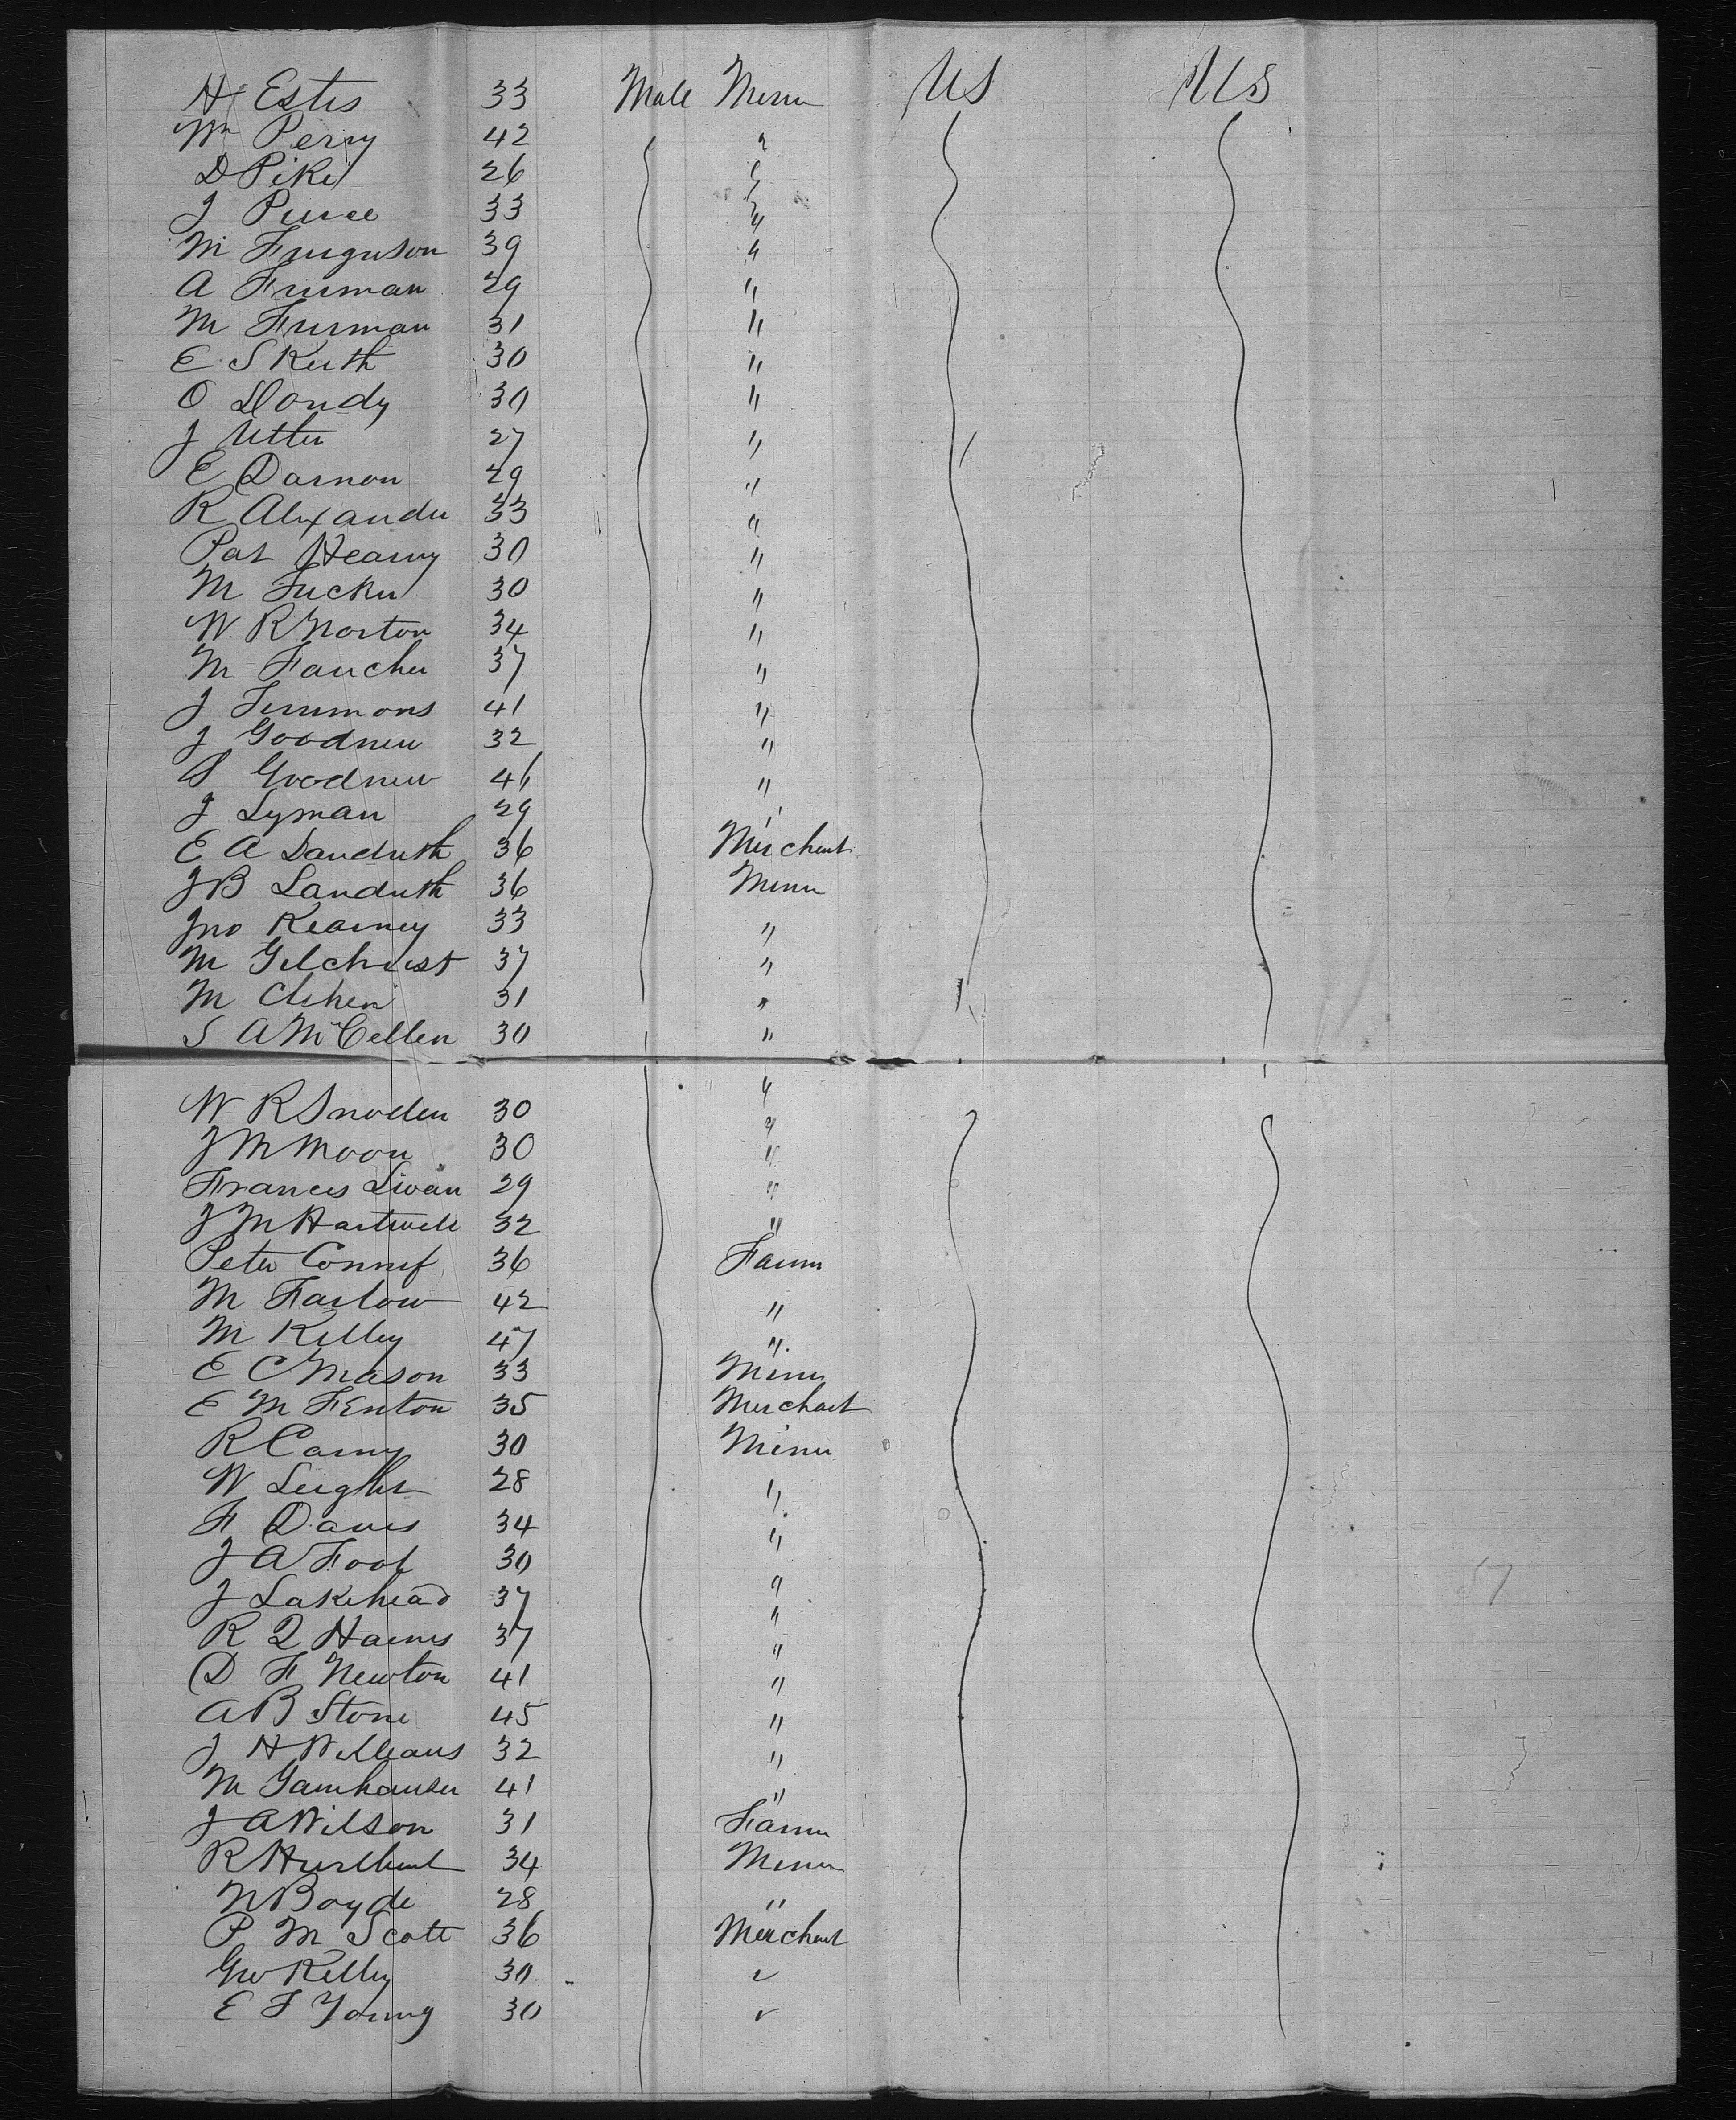 H Estes 33 Male Miner US US
Wm Perry 42 "
D Pike 26 "
J Pierce 33 "
M Furguson 39 "
A Fruman 29 "
M Furman 31 "
E S Keith 30 "
O Dondy 30 "
J Utter 27 "
E Darnon 29 "
R Alexander 33 "
Pat Hearny 30 "
M Tucker 30 "
W R Norton 34 "
M Faucher 37 "
J Timmons 41 "
J Goodnew 32 "
S Goodnew 46 "
J Lyman 29 "
E A Landreth 36 Merchant
J B Landreth 36 Miner
Jno Kearney 33 "
M Gilchrist 37 "
M 31 "
S A McCellen 30 "
W R Snoden 30 "
J M Moon 30 "
Frances Swan 29 "
J M Hartwell 32 "
Peter 36 Farmr
M Farlow 42 "
M Kelley 47 "
E C Mason 33 Miner
E M Fenton 35 Merchant
R Carny 30 Miner
W 28 "
F Davis 34 "
J A Foot 30 "
J Lakehead 37 "
R Q Haines 37 "
D F Newton 41 "
A B Stone 45 "
J H Williams 32 "
M 41 "
J A Wilson 31 Farmr
R Hurlbunt 34 Miner
N Boyde 28 "
P M Scott 36 Merchant
Geo Kelley 30 "
E F Young 30 "
57